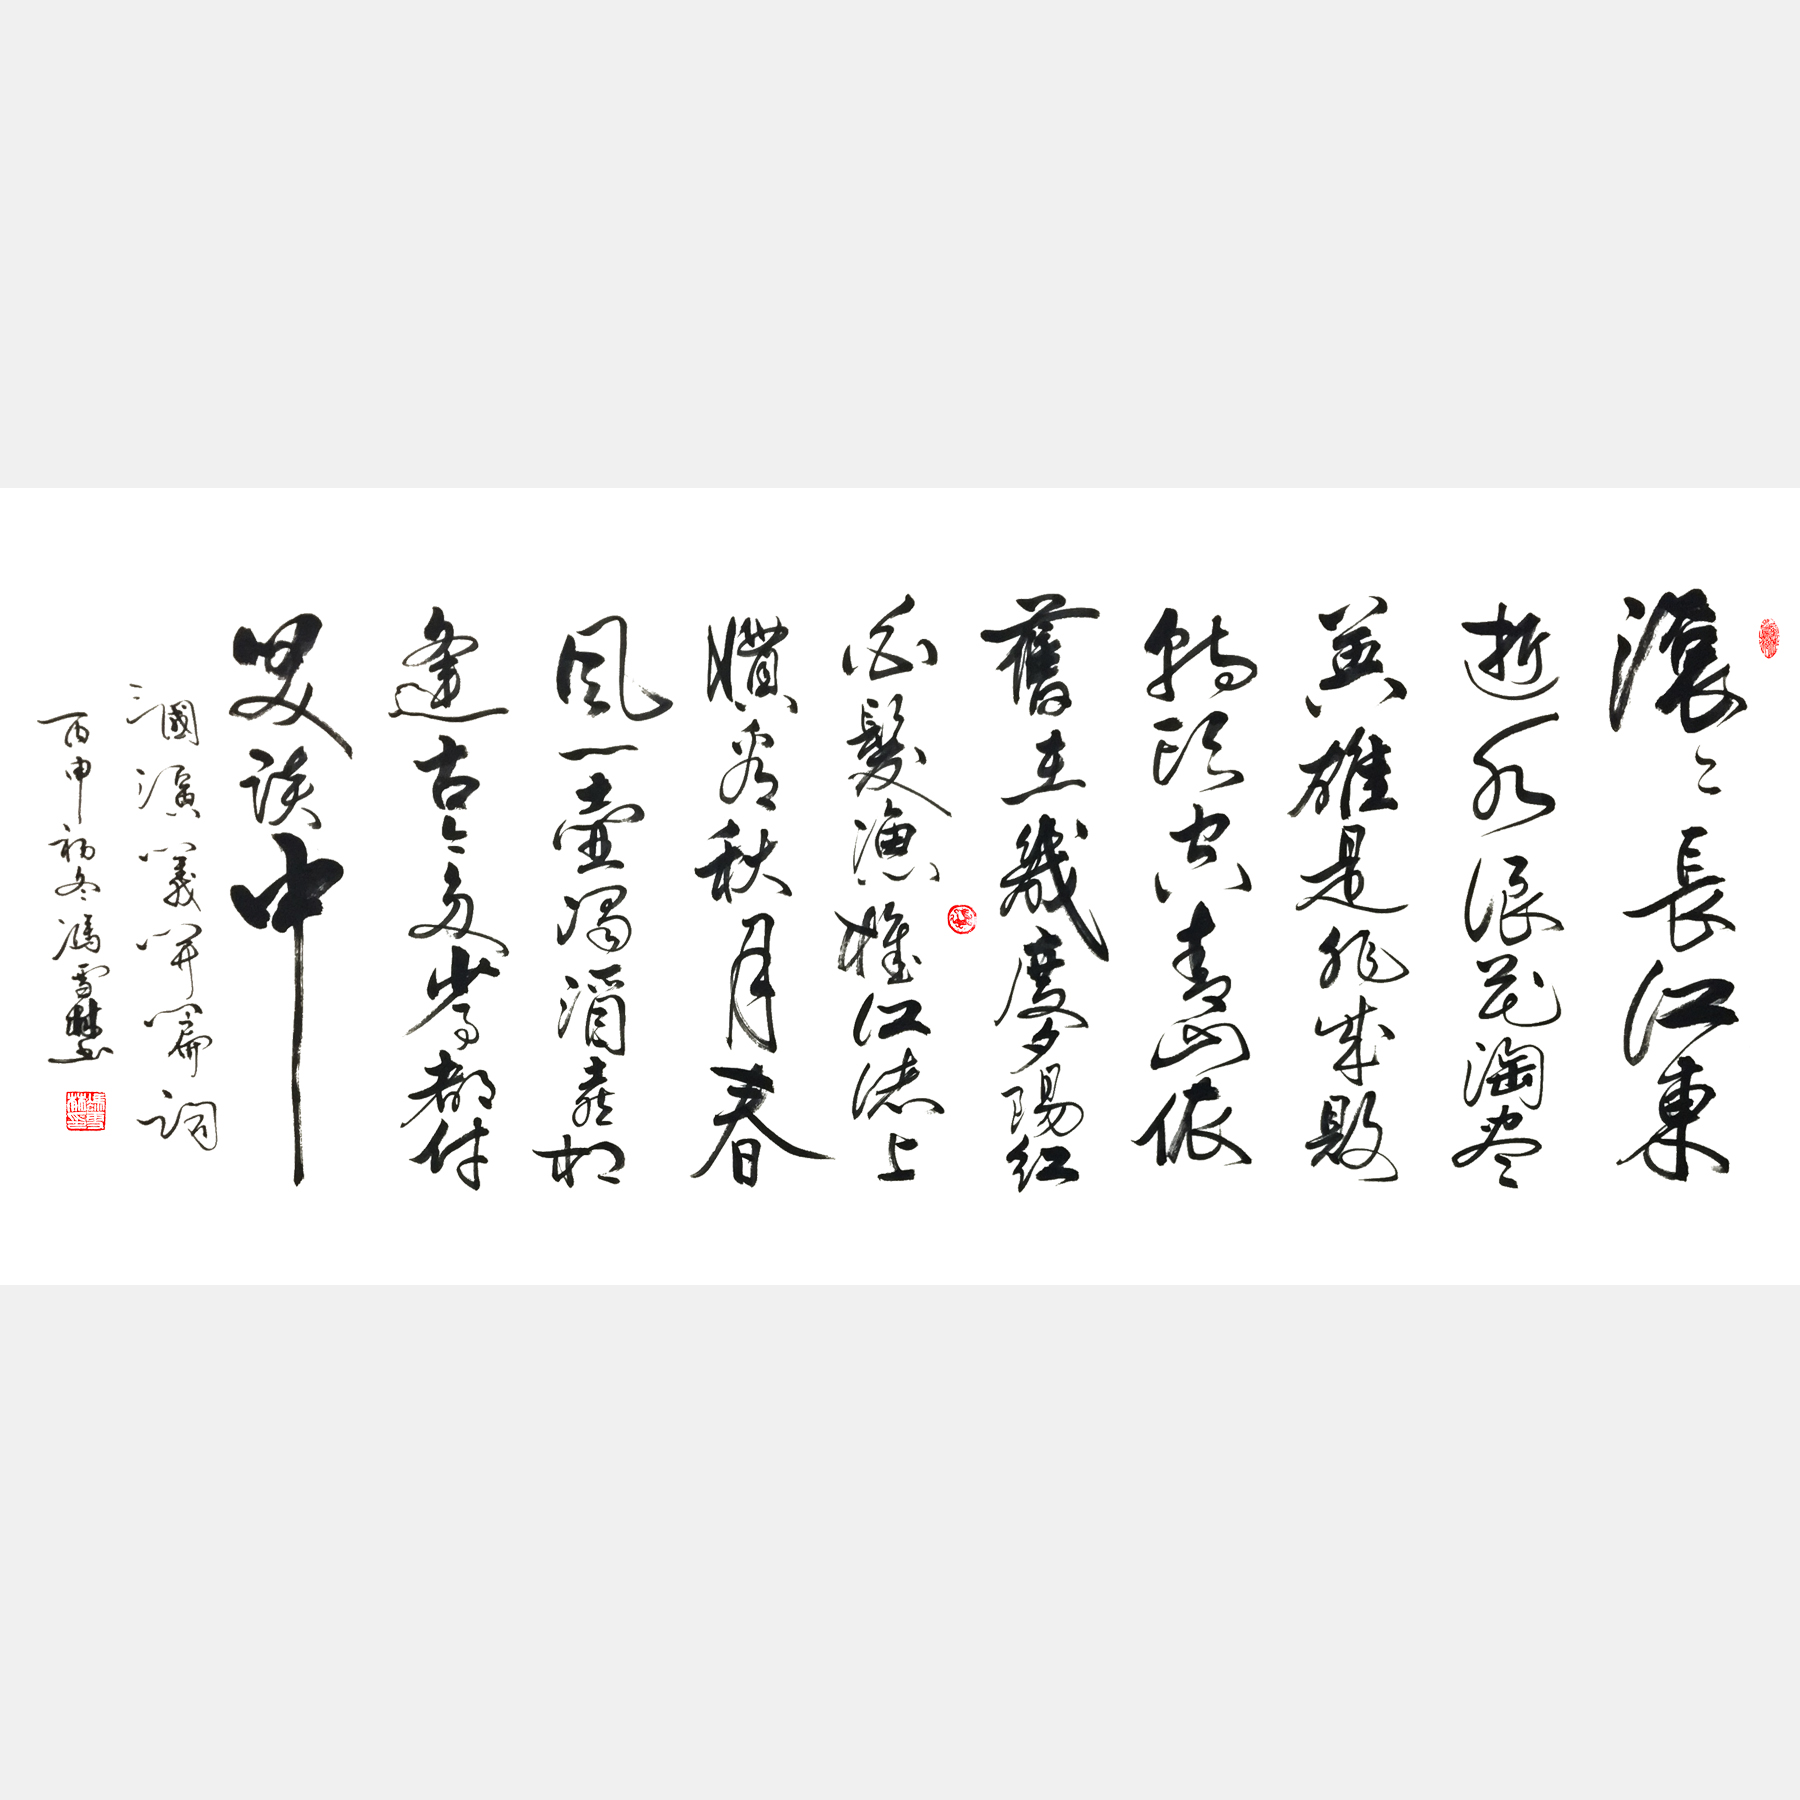 滾〻長江東
逝水浪花淘尽
英雄是非成敗
轉頭空青山依
舊在幾度夕陽紅
白髮漁樵江渚上
慣看秋月春
風一壺濁酒喜相
逢古今多少事都付
笑談中
三國演義開篇詞
丙申初冬馮雪林書